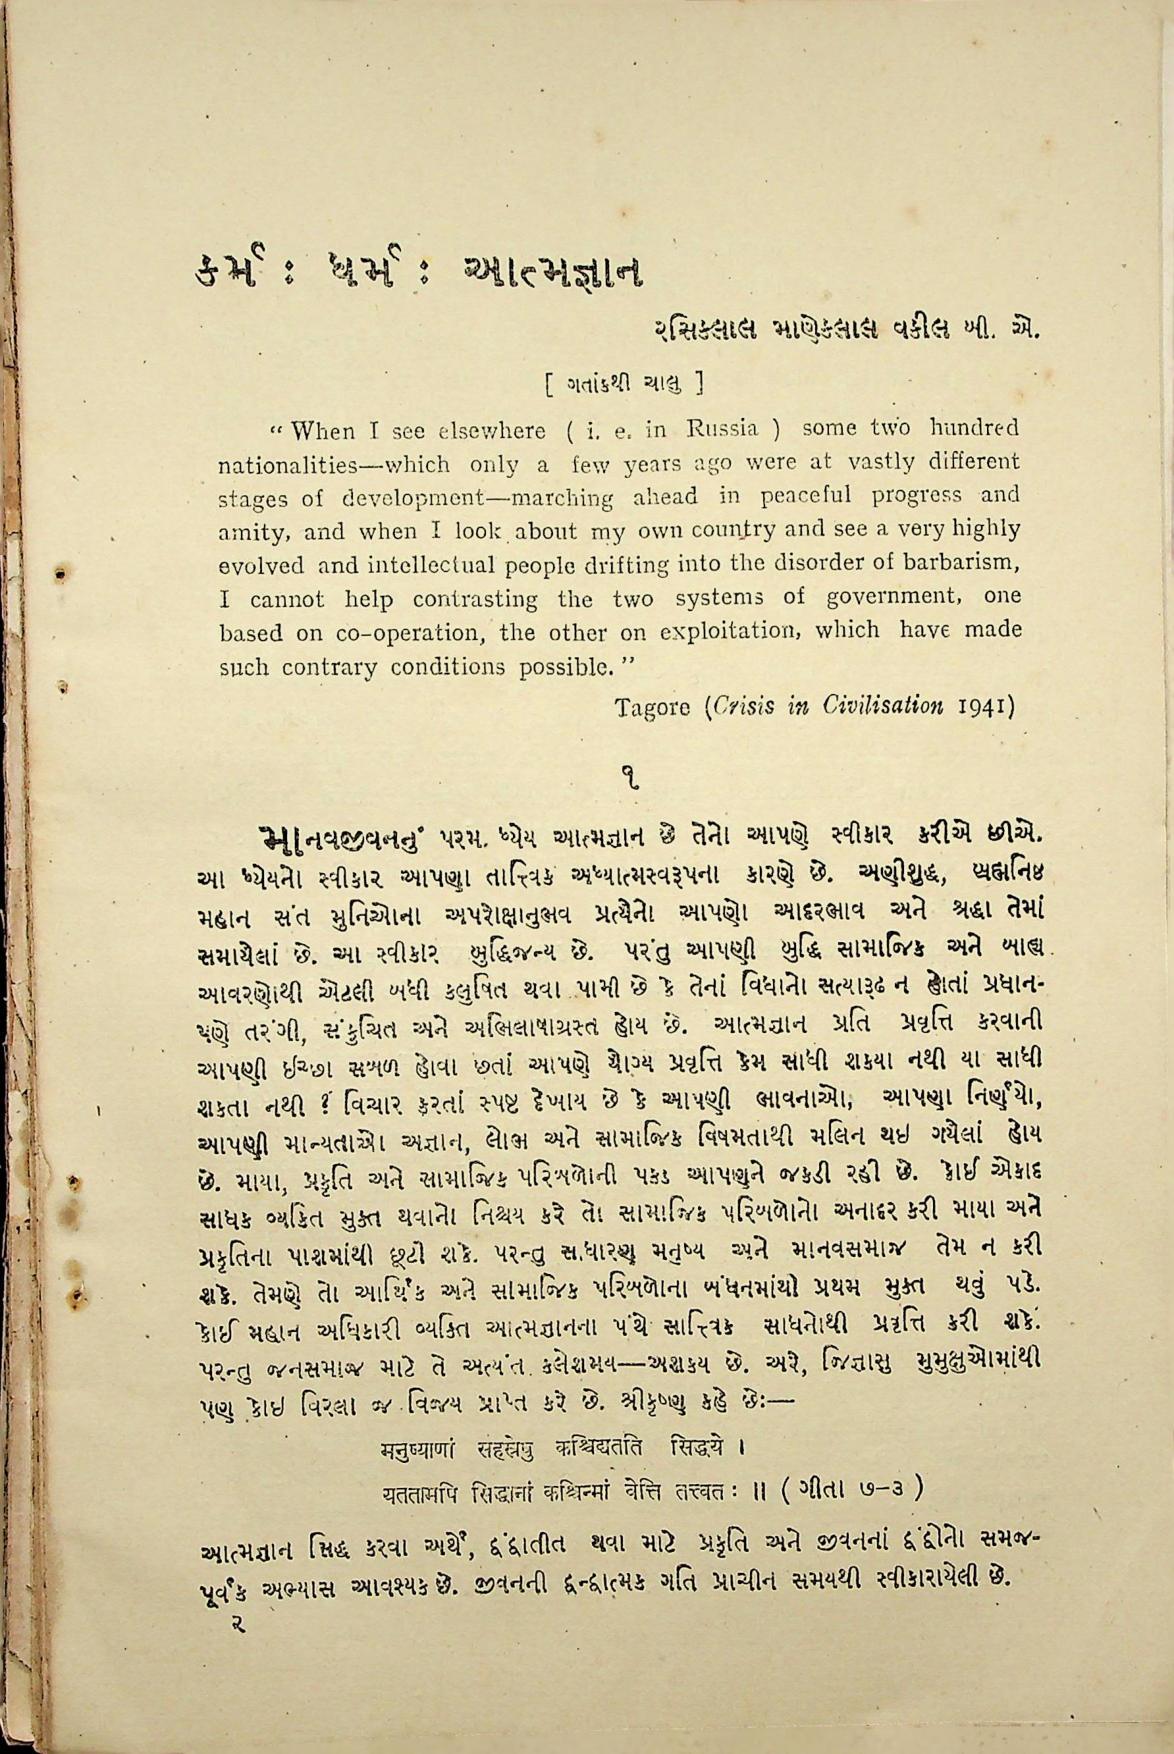 કર્મ : ધર્મ : આત્મજ્ઞાન
રસિકલાલ માણેકલાલ વકીલ બી. એ.
[ ગતાંકથી ચાલુ ]
“ When I see elsewhere ( i. e. in Russia ) some two hundred
nationalities—which only a few years ago were at vastly different
stages of development—marching ahead in peaceful progress and
amity, and when I look about my own country and see a very highly
evolved and intellectual people drifting into the disorder of barbarism,
I cannot help contrasting the two systems of government, one
based on co-operation, the other on exploitation, which have made
such contrary conditions possible. ”
Tagore (Crisis in Civilisation 1941)
૧
માનવજીવનનું પરમ ધ્યેય આત્મજ્ઞાન છે તેનો આપણે સ્વીકાર કરીએ છીએ.
આ ધ્યેયનો સ્વીકાર આપણા તાત્ત્વિક અધ્યાત્મસ્વરૂપના કારણે છે. અણીશુદ્ધ, બ્રહ્મનિષ્ઠ
મહાન સંત મુનિઓના અપરોક્ષાનુભવ પ્રત્યેનો આપણો આદરભાવ અને શ્રદ્ધા તેમાં
સમાયેલાં છે. આ સ્વીકાર બુદ્ધિજન્ય છે. પરંતુ આપણી બુદ્ધિ સામાજિક અને બાહ્ય
આવરણોથી એટલી બધી કલુષિત થવા પામી છે કે તેનાં વિધાનો સત્યારૂઢ ન હોતાં પ્રધાન-
પણે તરંગી, સંકુચિત અને અભિલાષાગ્રસ્ત હોય છે. આત્મજ્ઞાન પ્રતિ પ્રવૃત્તિ કરવાની
આપણી ઈચ્છા સબળ હોવા છતાં આપણે યોગ્ય પ્રવૃત્તિ કેમ સાધી શકયા નથી યા સાધી
શકતા નથી ? વિચાર કરતાં સ્પષ્ટ દેખાય છે કે આપણી ભાવનાઓ, આપણા નિર્ણયો,
આપણી માન્યતાઓ અજ્ઞાન, લોભ અને સામાજિક વિષમતાથી મલિન થઇ ગયેલાં હોય
છે. માયા, પ્રકૃતિ અને સામાજિક પરિબળોની પકડ આપણને જકડી રહી છે. કોઈ એકાદ
સાધક વ્યકિત મુક્ત થવાનો નિશ્ચય કરે તો સામાજિક પરિબળોનો અનાદર કરી માયા અને
પ્રકૃતિના પાશમાંથી છૂટી શકે. પરન્તુ સાધારણ મનુષ્ય અને માનવસમાજ તેમ ન કરી
શકે. તેમણે તો આર્થિક અને સામાજિક પરિબળોના બંધનમાંથી પ્રથમ મુક્ત થવું પડે.
કોઈ મહાન અધિકારી વ્યક્તિ આત્મજ્ઞાનના પંથે સાત્ત્વિક સાધનોથી પ્રવૃત્તિ કરી શકે.
પરન્તુ જનસમાજ માટે તે અત્યંત કલેશમય—અશકય છે. અરે, જિજ્ઞાસુ મુમુક્ષુઓમાંથી
પણ કોઇ વિરલા જ વિજય પ્રાપ્ત કરે છે. શ્રીકૃષ્ણ કહે છેઃ—
मनुष्याणां सहस्रेषु कश्चिद्यतति सिद्धये ।
यततामपि सिद्धानां कश्चिन्मां वेत्ति तत्त्वतः ॥ ( ગીતા ૭-૩ )
આત્મજ્ઞાન સિદ્ધ કરવા અર્થે, દ્વંદ્વાતીત થવા માટે પ્રકૃતિ અને જીવનનાં દ્વંદ્વોનો સમજ-
પૂર્વક અભ્યાસ આવશ્યક છે. જીવનની દ્વન્દ્વાત્મક ગતિ પ્રાચીન સમયથી સ્વીકારાયેલી છે.
૨